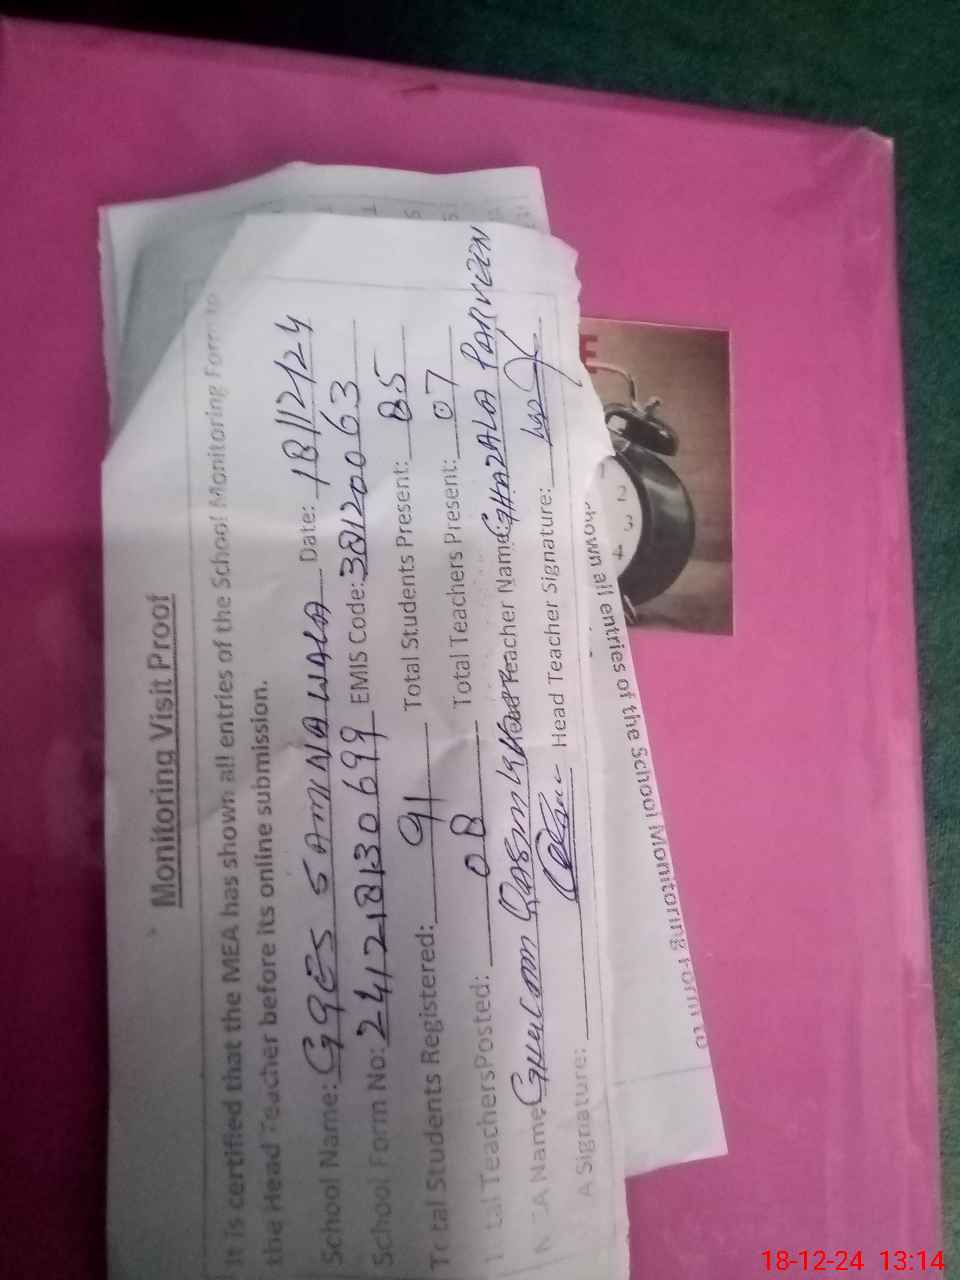 Monitoring Visit Proof
It is certified that the MEA has shown all entries of the School Monitoring Form to
the Head Teacher before its online submission.
School Name: GGES SAMINAWALA Date: 18/12/24
School Form No: 241218130699 EMIS Code: 38120063
Total Students Registered: 91 Total Students Present: 85
tal Teachers Posted: 08 Total Teachers Present: 07
A Name: GHULAM Head Teacher Name: GHAZALA PARVEEN
A Signature: Head Teacher Signature:
hown all entries of the School Monitoring Form to
E
2
3
4
18-12-24 13:14